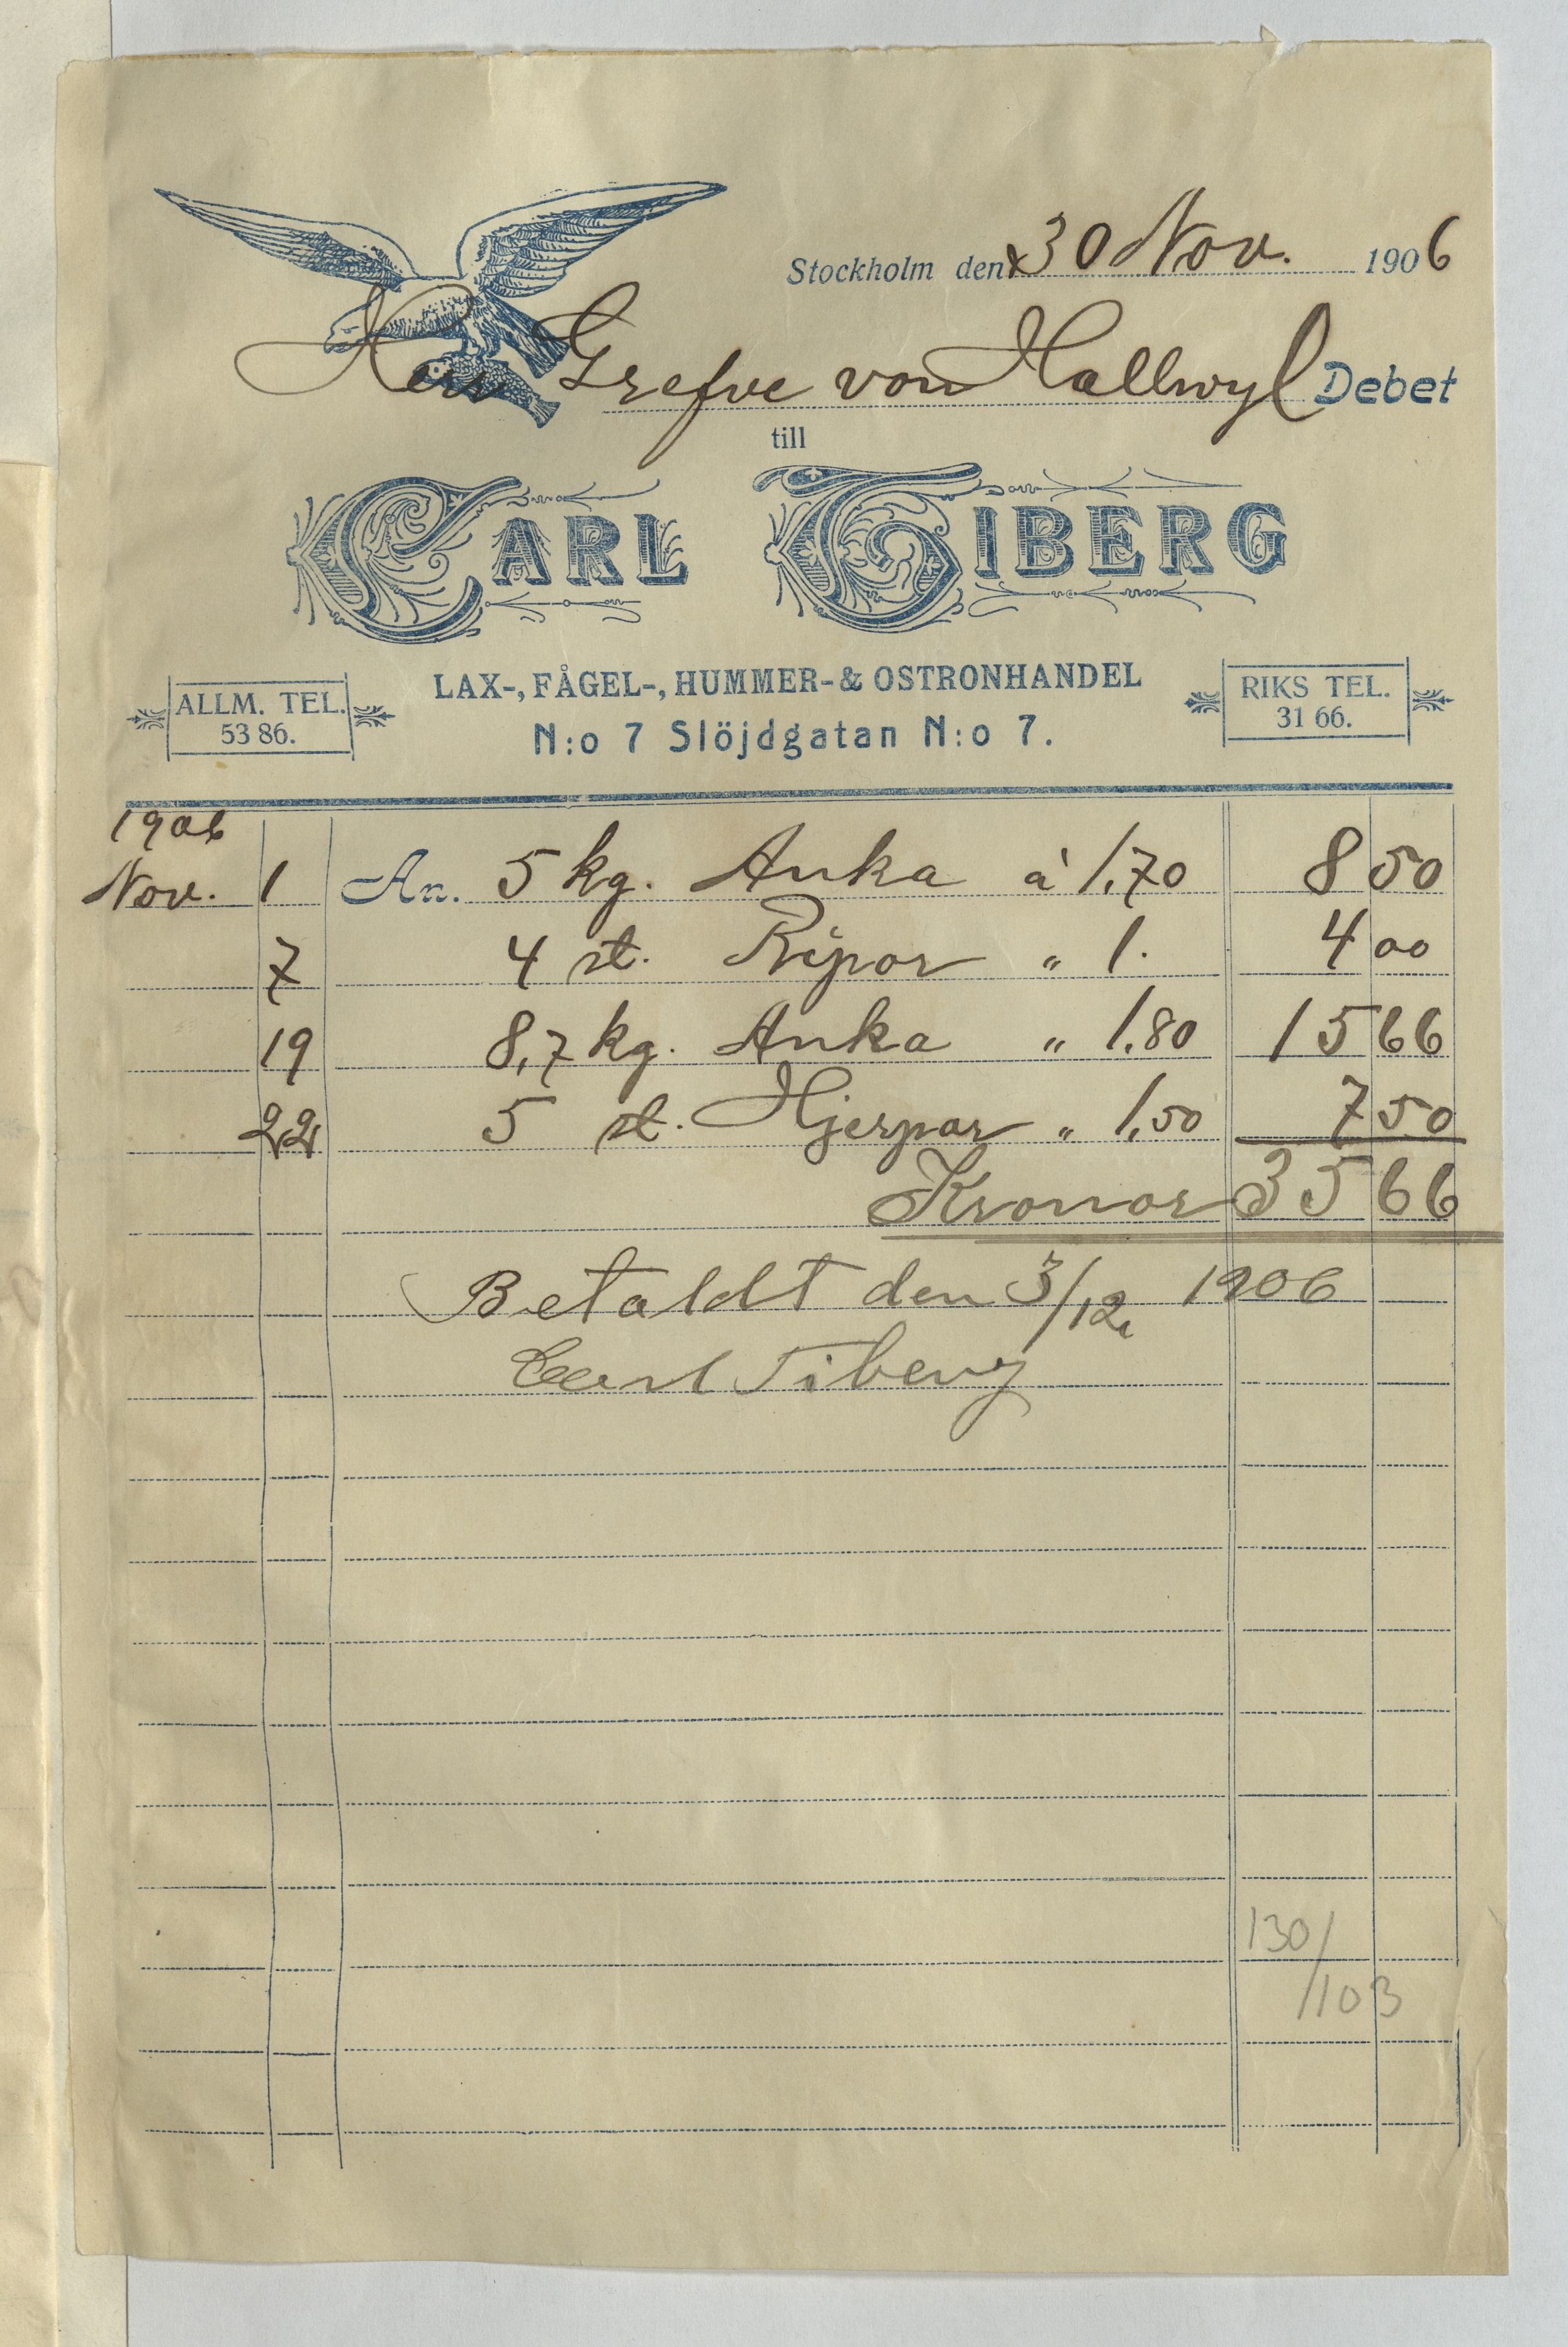 Stockholm den 30 Nov. 1906
Herr Grefve von Hallwyl Debet
till
CARL TIBERG
LAX-, FÅGEL-, HUMMER- & OSTRONHANDEL
ALLM. TEL. 53 86.
N:o 7 Slöjdgatan N:o 7.
RIKS TEL. 31 66.
1906
Nov. 1 An. 5 kg. Anka à 1,70 8 50
7 4 st. Ripor " 1. 4 00
19 8,7 kg. Anka " 1,80 15 66
22 5 st. Hjerpar " 1,50 7 50
Kronor 35 66
Betaldt den 3/12 1906
Carl Tiberg
130/
/103